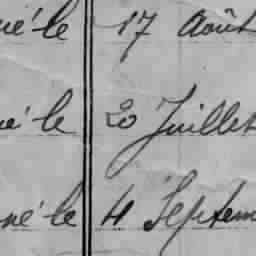 né le 17 Août
né le 20 Juillet
né le 4 Septem